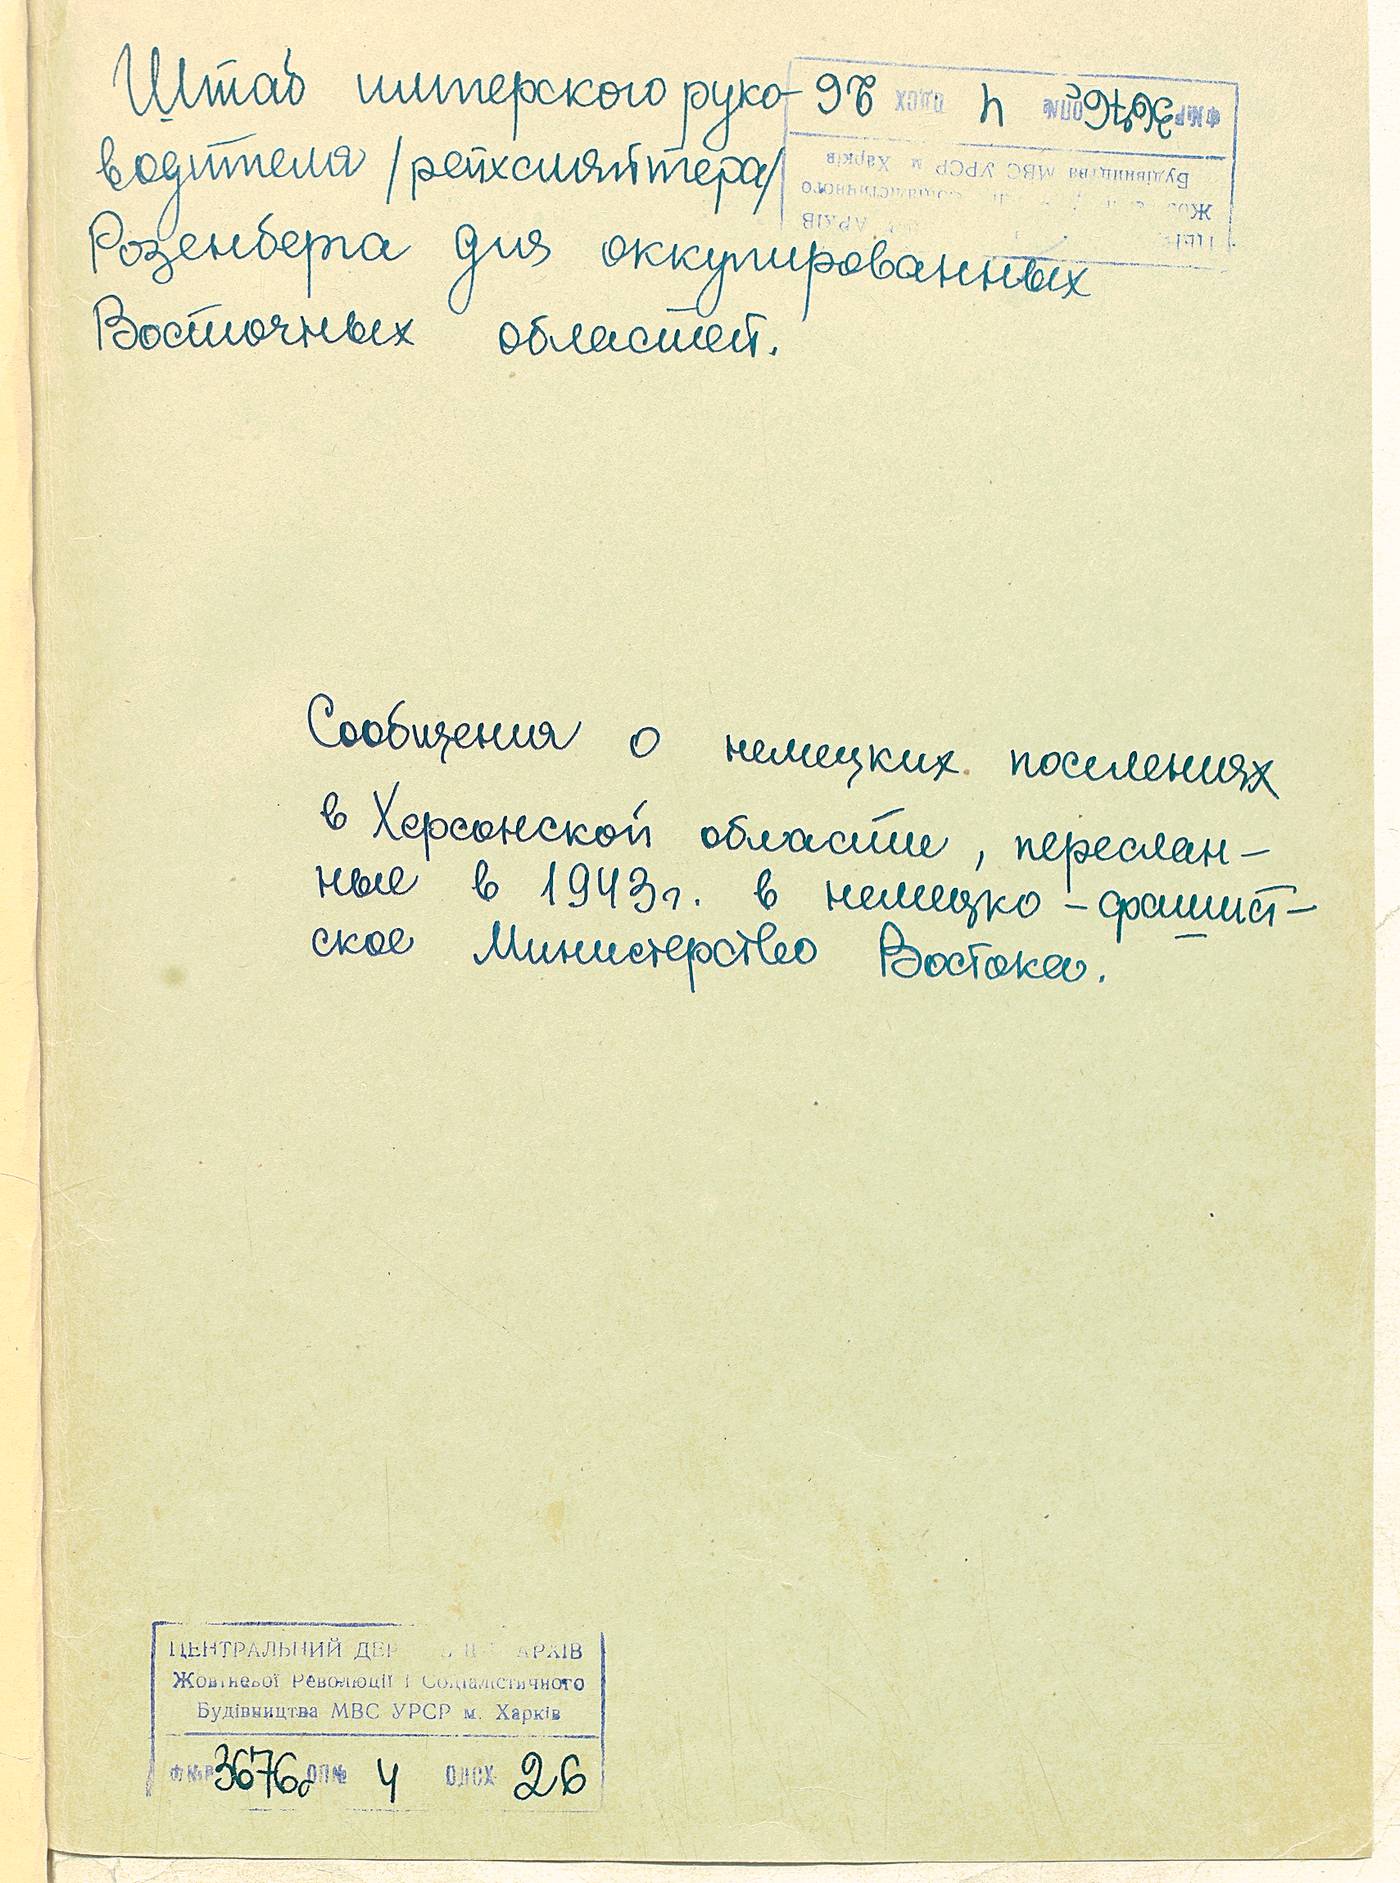 Штаб имперского руко-
водителя /рейхсляйтера/
Розенберга для оккупированных
Восточных областей.
ФNР 3676 ОПN 4 ОДСХ 26
Будівництва МВС УРСР м Харків
Сообщения о немецких поселениях
в Херсонской области, переслан-
ные в 1943г. в немецко-фашист-
ское Министерство Востока.
ЦЕНТРАЛЬНИЙ ДЕР АРХІВ
Жовтневої Революції і Соціалістичного
Будівництва МВС УРСР м. Харків
ФNР 3676 ОПN 4 ОДСХ 26